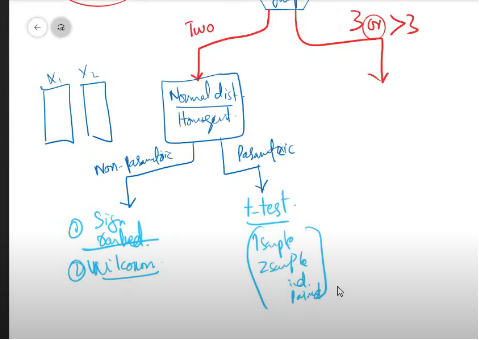 Two
3 or >3
X1 Y2
Normal dist.
Homogent.
Non-parametric
Parametric
① Sign
Ranked
② Wilcoxon
t-test.
1 Sample
2 Sample
ind.
Paired